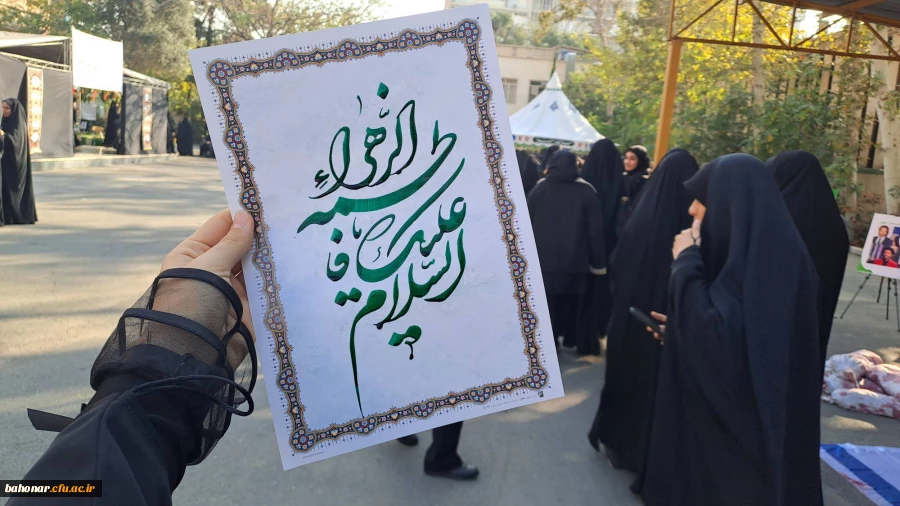 السّلام
علیک یا
فاطمه
الزّهراء
bahonar.cfu.ac.ir